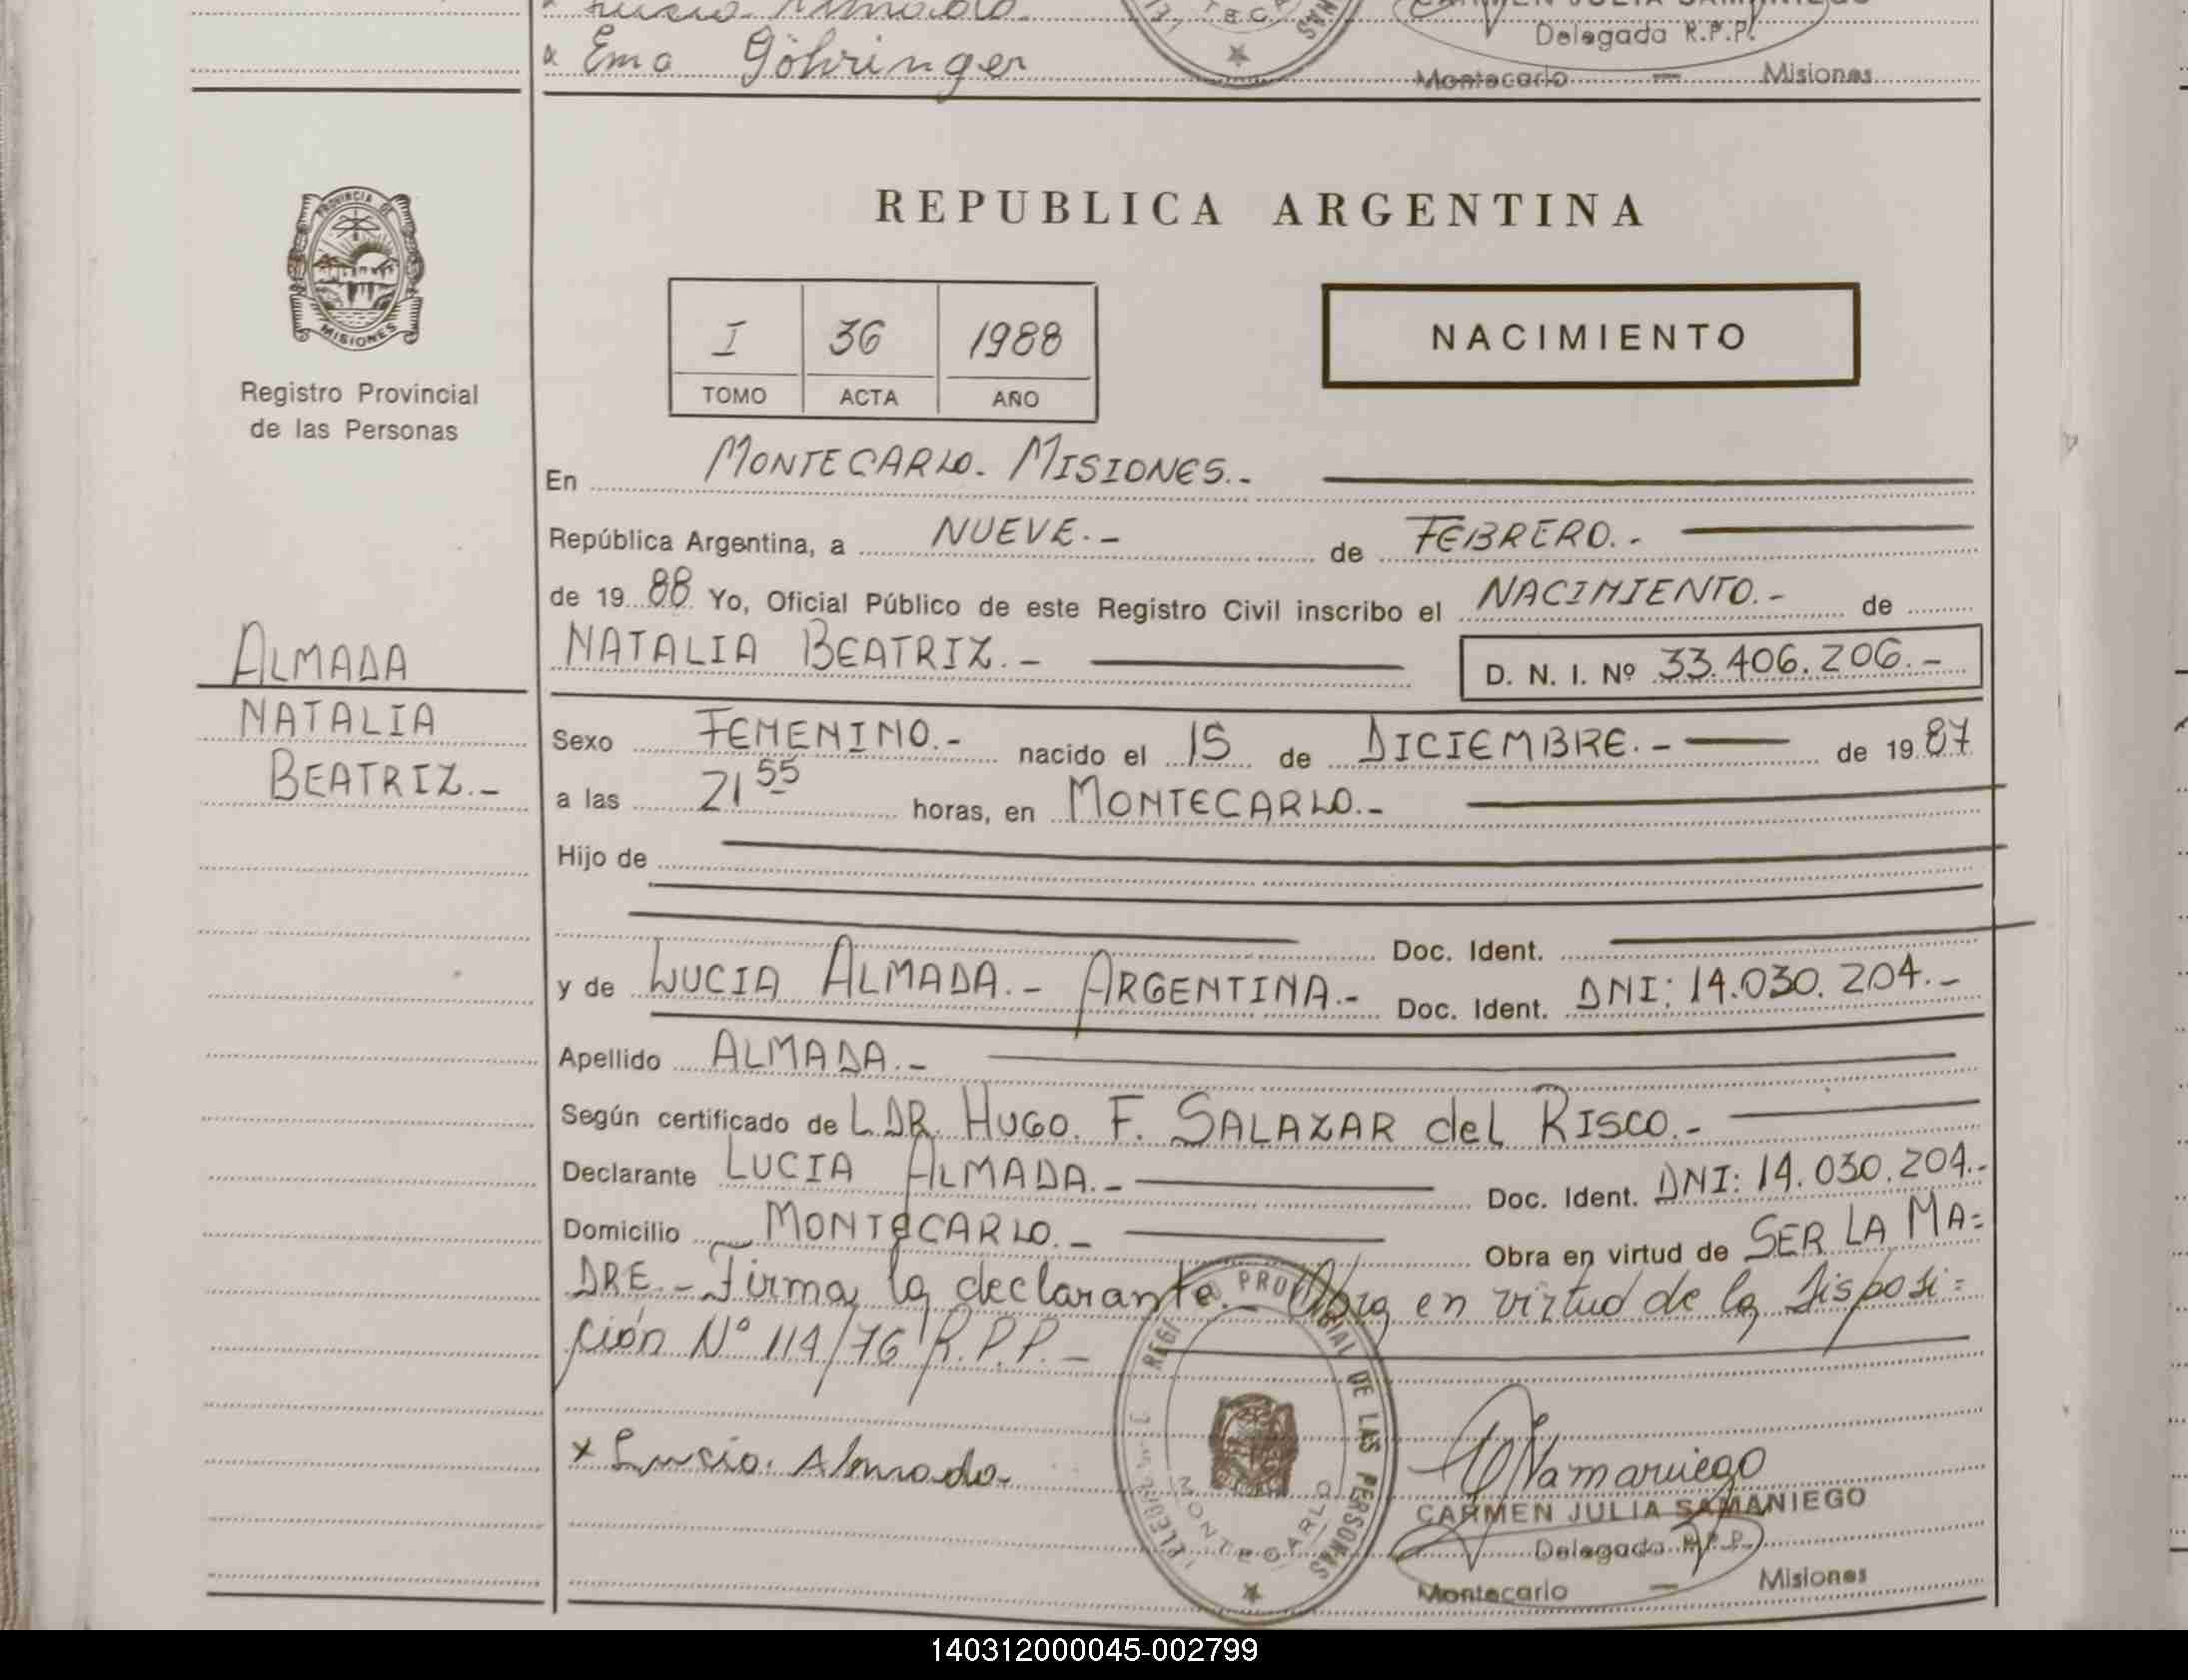 Ema Göhringer
Delegada R.P.P.
Montecarlo — Misiones
PROVINCIA DE
MISIONES
Registro Provincial
de las Personas
ALMADA
NATALIA
BEATRIZ.-
REPUBLICA ARGENTINA
I 36 1988
TOMO ACTA AÑO
NACIMIENTO
En MONTECARLO. MISIONES.-
República Argentina, a NUEVE.- de FEBRERO.-
de 1988 Yo, Oficial Público de este Registro Civil inscribo el NACIMIENTO.- de
NATALIA BEATRIZ.- D. N. I. Nº 33.406.206.-
Sexo FEMENINO.- nacido el 15 de DICIEMBRE.- de 1987
a las 21 55 horas, en MONTECARLO.-
Hijo de
Doc. Ident.
y de LUCIA ALMADA.- ARGENTINA.- Doc. Ident. DNI: 14.030.204.-
Apellido ALMADA.-
Según certificado de L DR. HUGO. F. SALAZAR del RISCO.-
Declarante LUCIA ALMADA.- Doc. Ident. DNI: 14.030.204.-
Domicilio MONTECARLO.- Obra en virtud de SER LA MA=
DRE.- Firma la declarante.- Obra en virtud de la Disposi=
ción Nº 114/76 R.P.P.-
x Lucia Almada.
REGI PROVINCIAL DE LAS PERSONAS
MONTECARLO
CARMEN JULIA SAMANIEGO
Delegada R.P.P.
Montecarlo — Misiones
140312000045-002799